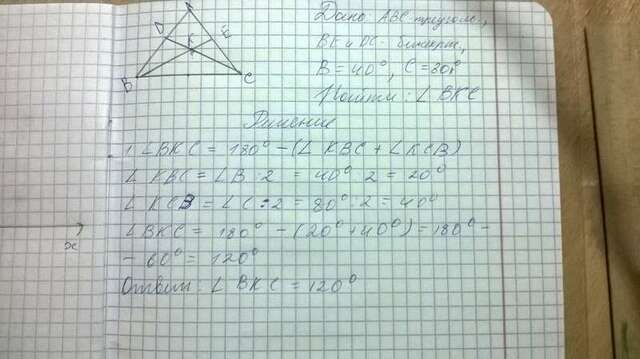 A
D
E
K
B
C
Дано: ABC-треугольн.,
BE и DC- биссектр.,
B = 40°, C = 80°
Найти: ∠ BKC
Решение
1. ∠BKC = 180° -(∠ KBC + ∠KCB)
∠ KBC = ∠B : 2 = 40° : 2 = 20°
∠ KCB = ∠C : 2 = 80° : 2 = 40°
∠BKC = 180° - (20° + 40°) = 180° -
- 60° = 120°
Ответ: ∠ BKC = 120°
x